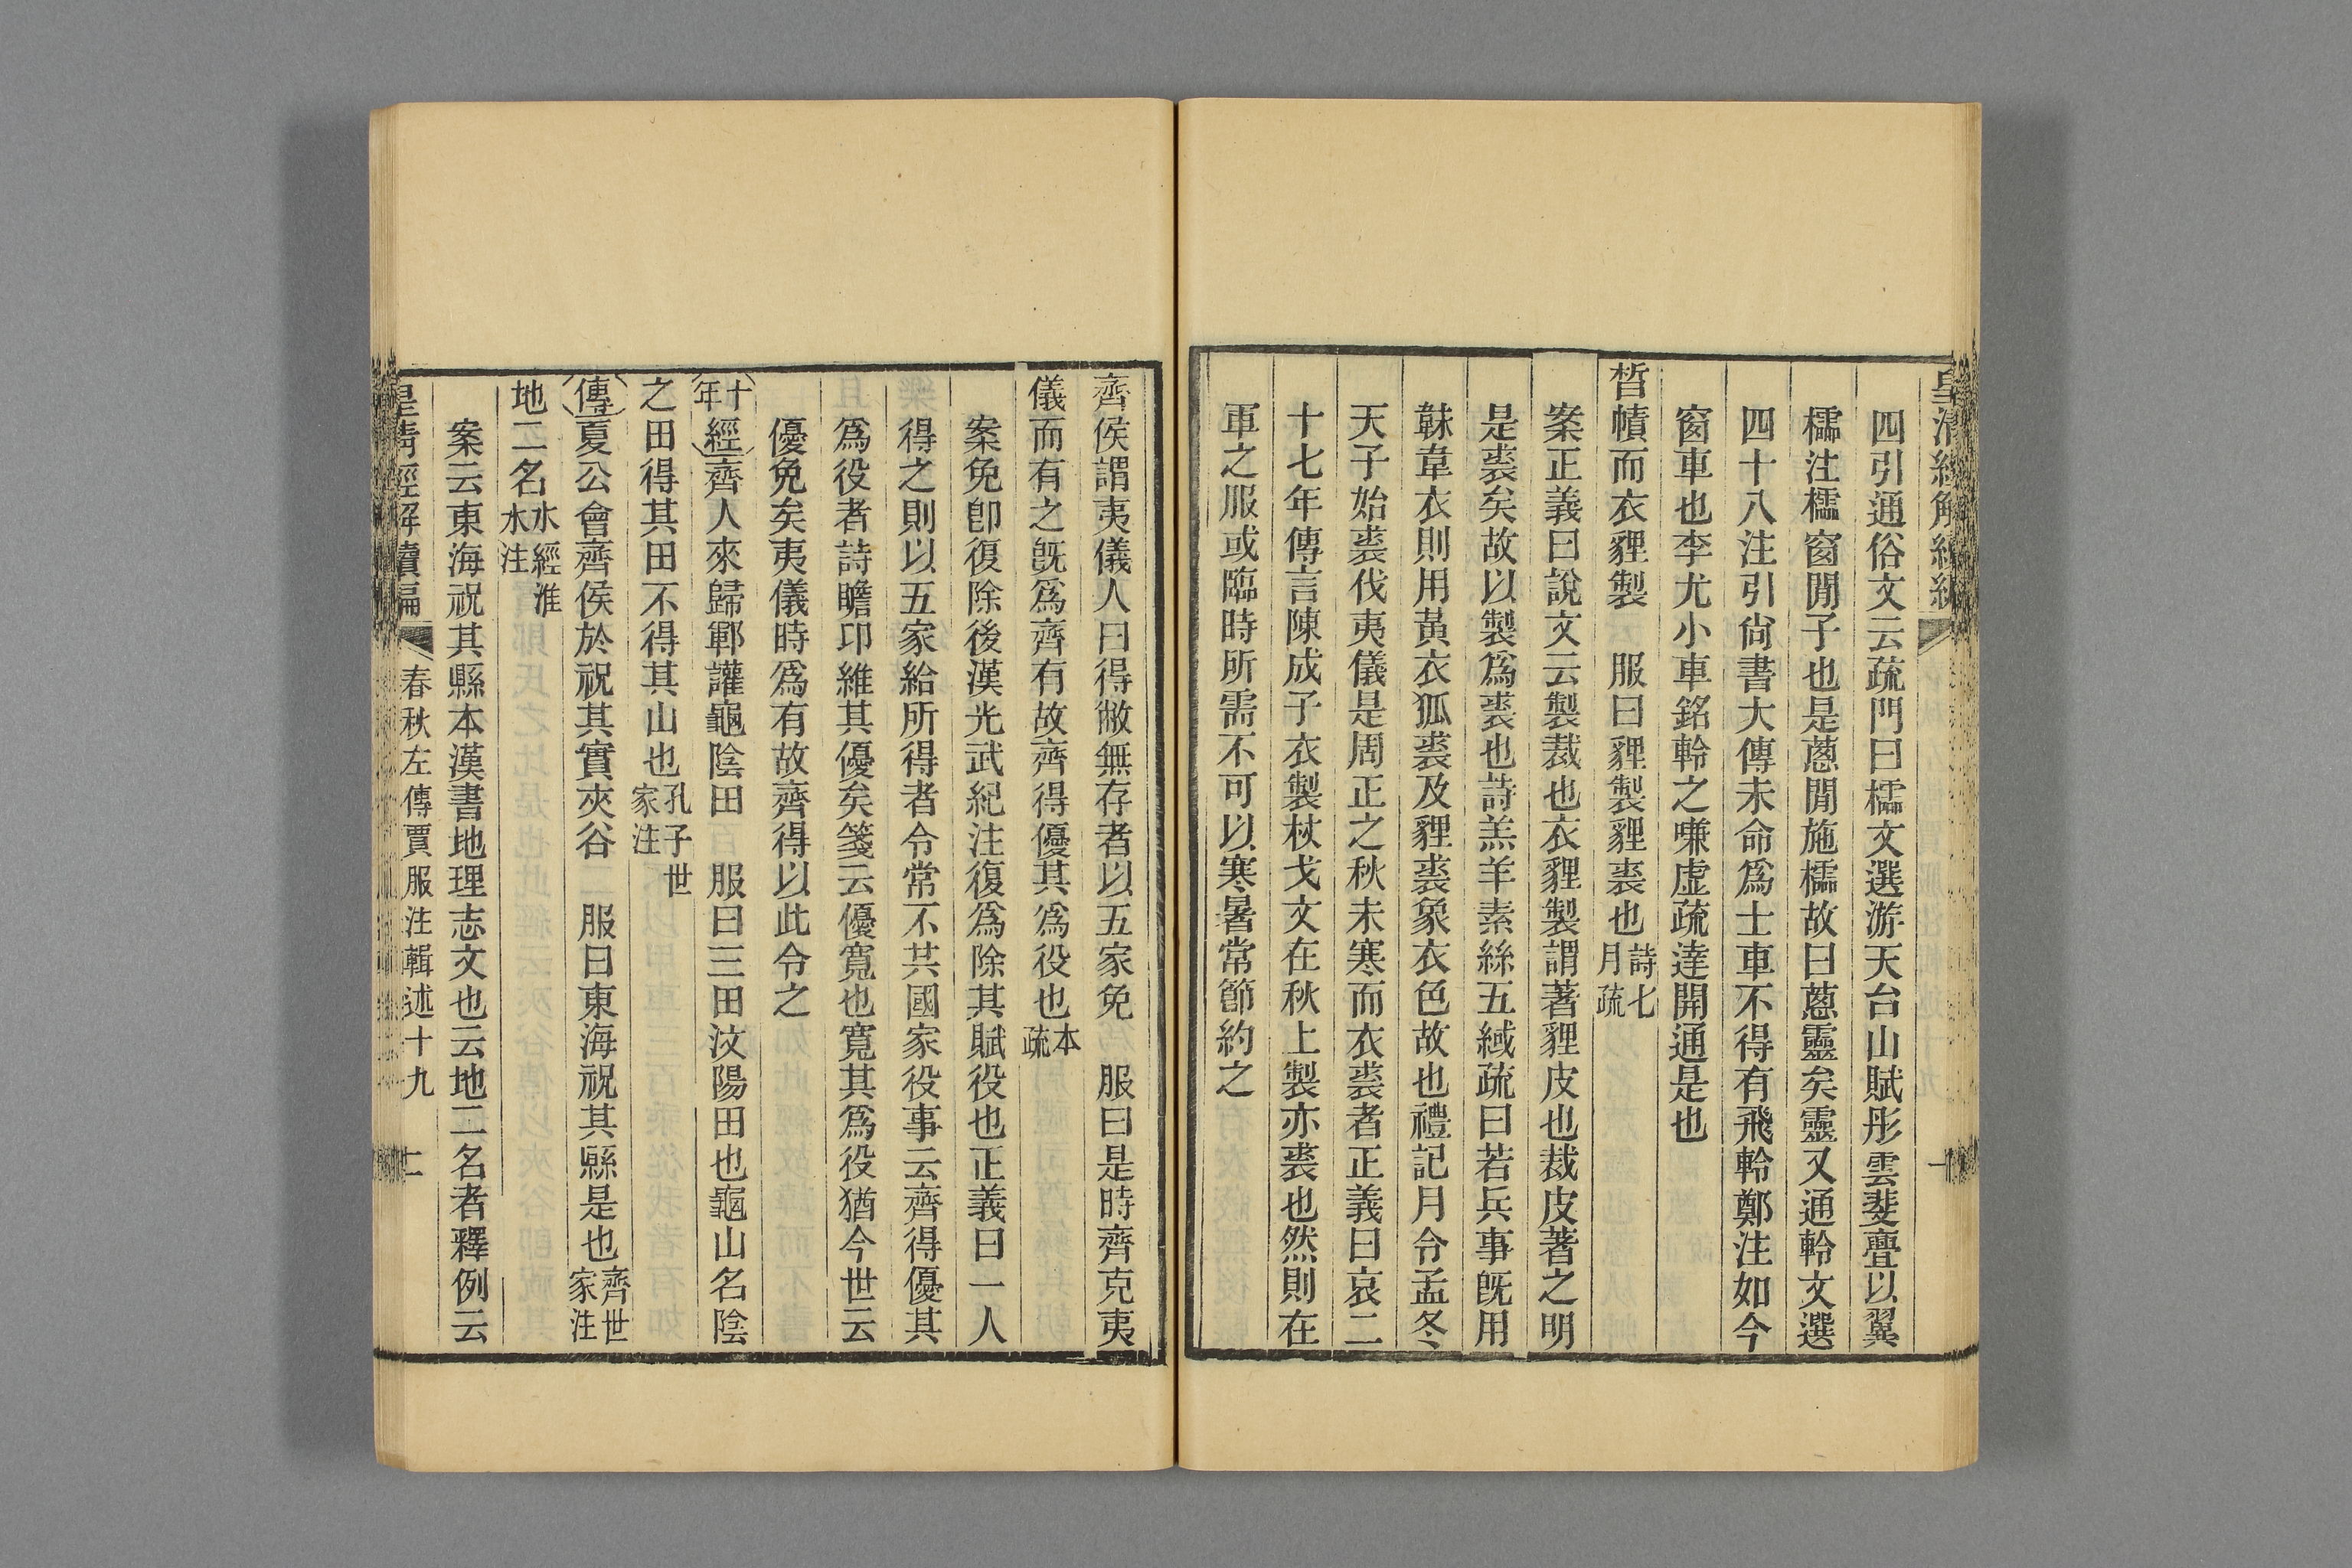 四引通俗文云疏門曰櫺文選游天台山賦彤雲斐亹以翼
櫺注櫺窗閒子也是蔥閒施櫺故曰蔥靈矣靈又通軨文選
四十八注引尙書大傳未命爲士車不得有飛軨鄭注如今
窗車也李尤小車銘軨之嗛虛疏達開通是也
晳幘而衣貍製　服曰貍製貍裘也詩七月疏
案正義曰說文云製裁也衣貍製謂著貍皮也裁皮著之明
是裘矣故以製爲裘也詩羔羊素絲五緎疏曰若兵事旣用
韎韋衣則用黃衣狐裘及貍裘象衣色故也禮記月令孟冬
天子始裘伐夷儀是周正之秋未寒而衣裘者正義曰哀二
十七年傳言陳成子衣製杖戈文在秋上製亦裘也然則在
軍之服或臨時所需不可以寒暑常節約之
齊侯謂夷儀人曰得敝無存者以五家免　服曰是時齊克夷
儀而有之旣爲齊有故齊得優其爲役也本疏
案免卽復除後漢光武紀注復爲除其賦役也正義曰一人
得之則以五家給所得者令常不共國家役事云齊得優其
爲役者詩瞻卬維其優矣箋云優寬也寬其爲役猶今世云
優免矣夷儀時爲有故齊得以此令之
十年經齊人來歸鄆讙龜陰田　服曰三田汶陽田也龜山名陰
之田得其田不得其山也孔子世家注
傳夏公會齊侯於祝其實夾谷　服曰東海祝其縣是也齊世家注
地二名水經淮水注
案云東海祝其縣本漢書地理志文也云地二名者釋例云
皇淸經解續編　春秋左傳賈服注輯述十九